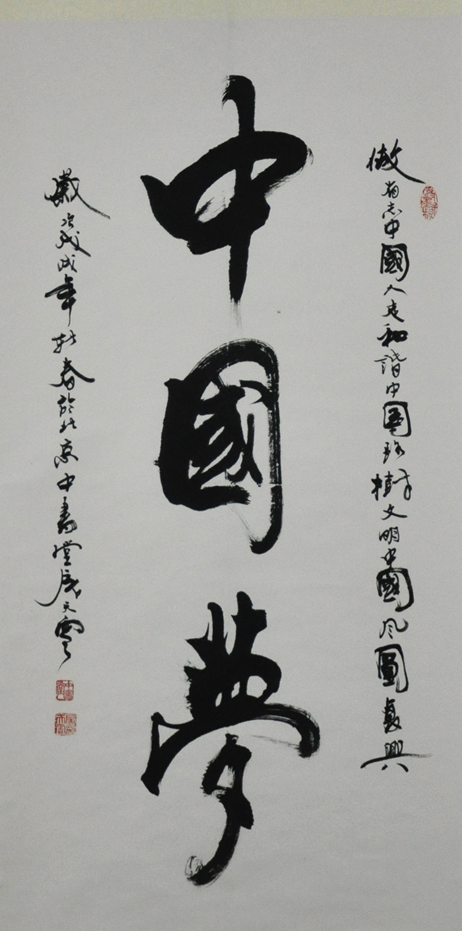 做有志中國人走和諧中國路樹文明中國风圓復興
中國夢
歲次戊戌年新春於北京中書堂